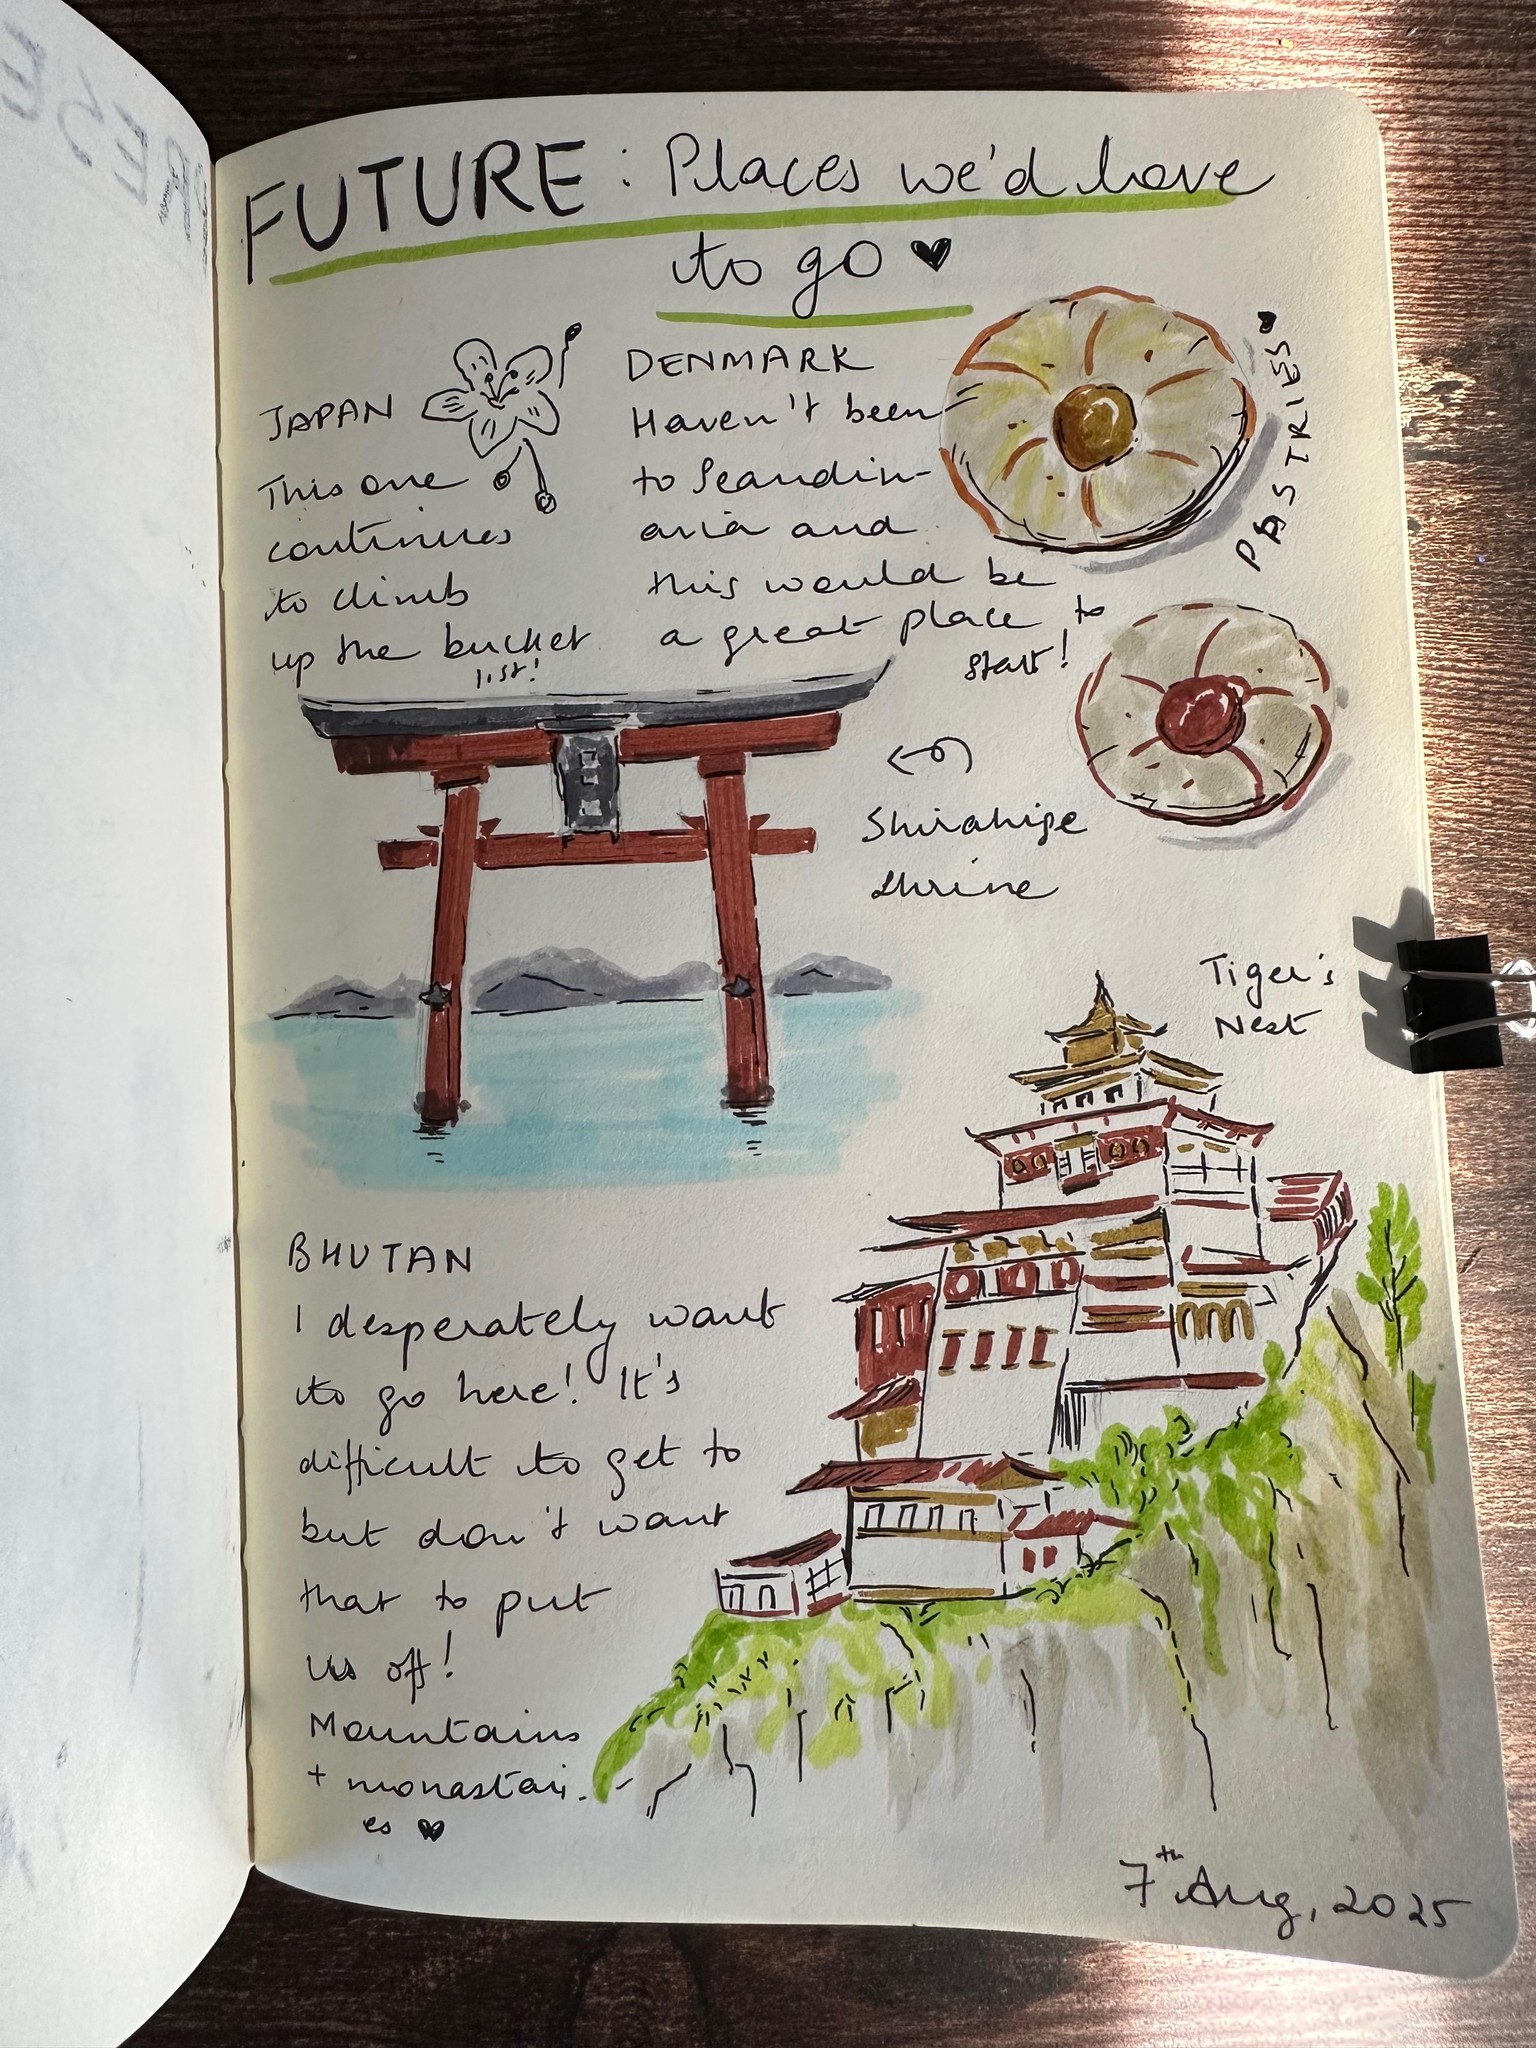 FUTURE: Places we'd love
to go
JAPAN
This one
continues
to climb
up the bucket
list!
DENMARK
Haven't been
to Scandin-
avia and
this would be
a great place to
start!
PASTRIES
Shirahige
Shrine
Tiger's
Nest
BHUTAN
I desperately want
to go here! It's
difficult to get to
but don't want
that to put
us off!
Mountains
+ monasteri-
es
7th Aug, 2025